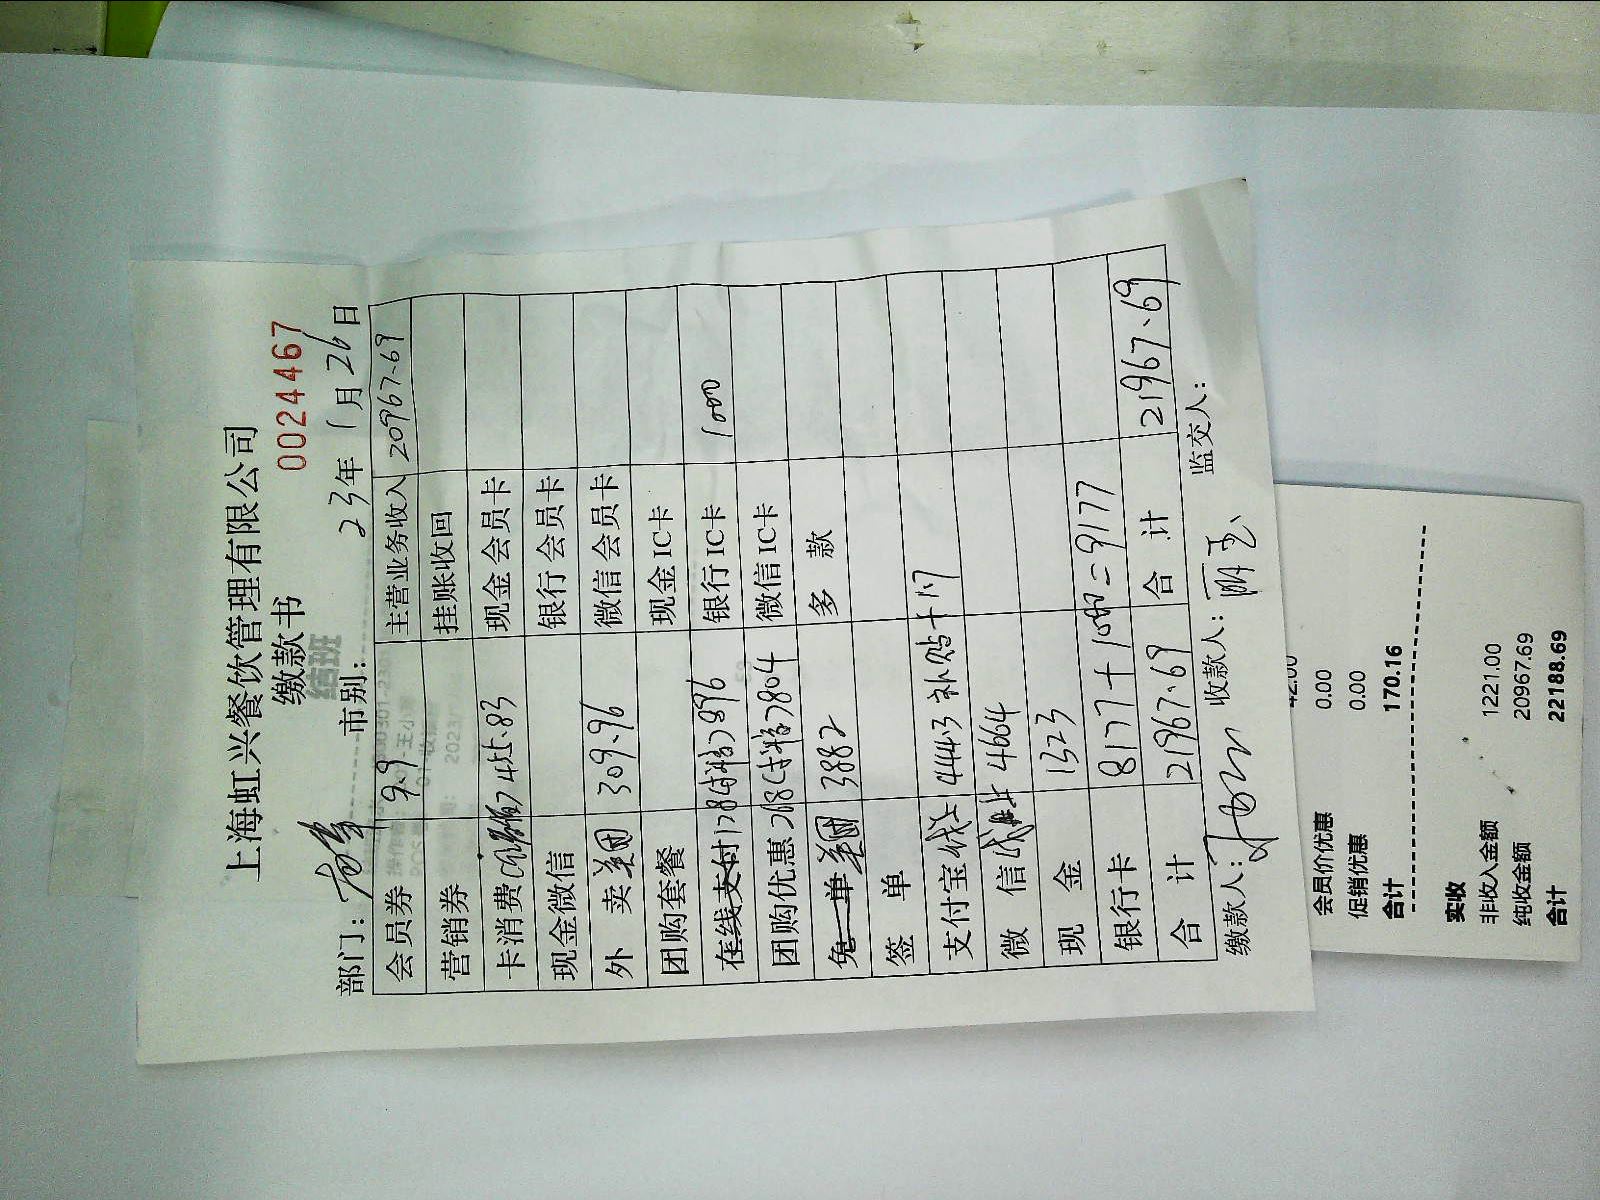 上海虹兴餐饮管理有限公司
缴款书 0024467
部门： 市别： 23年1月26日
会员券 9.9 主营业务收入 20967.69
营销券 挂账收回
卡消费 455.83 现金会员卡
现金微信 银行会员卡
外卖 美团 309.96 微信会员卡
团购套餐 现金IC卡
在线支付 银行IC卡 1000
团购优惠 微信IC卡
免单 美团 3882 多款
签单
支付宝 线上 4443 补贴
微信 线上 4664
现金 1323
银行卡 8177+1000=9177
合计 21967.69 合计 21967.69
缴款人： 收款人： 监交人：
会员价优惠 0.00
促销优惠 0.00
合计 170.16
实收
非收入金额 1221.00
纯收金额 20967.69
合计 22188.69